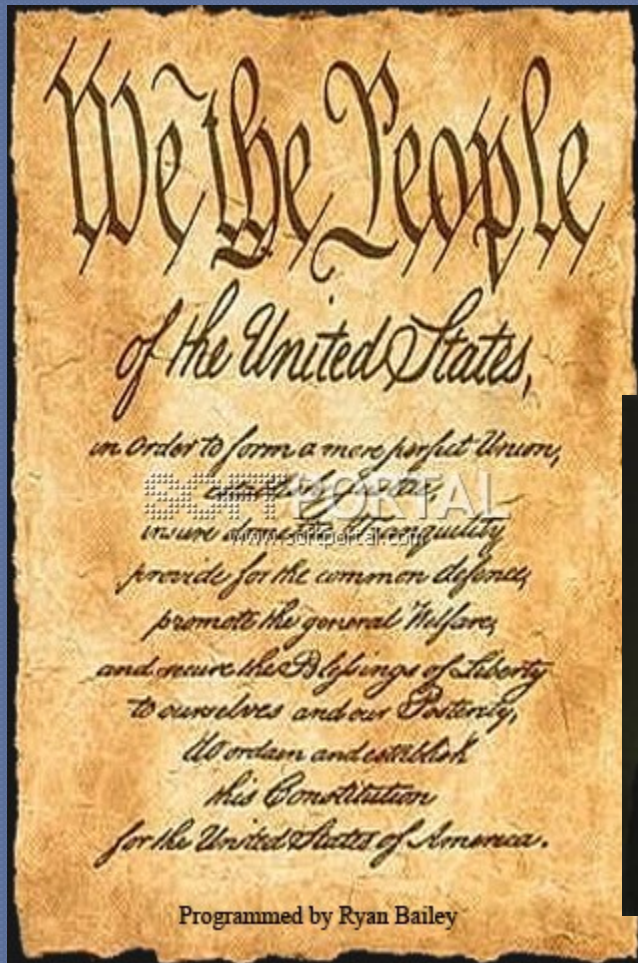 We the People
of the United States,
in Order to form a more perfect Union,
establish Justice,
insure domestic Tranquility
provide for the common defence,
promote the general Welfare,
and secure the Blessings of Liberty
to ourselves and our Posterity,
do ordain and establish
this Constitution
for the United States of America.
SOFTPORTAL
www.softportal.com
Programmed by Ryan Bailey